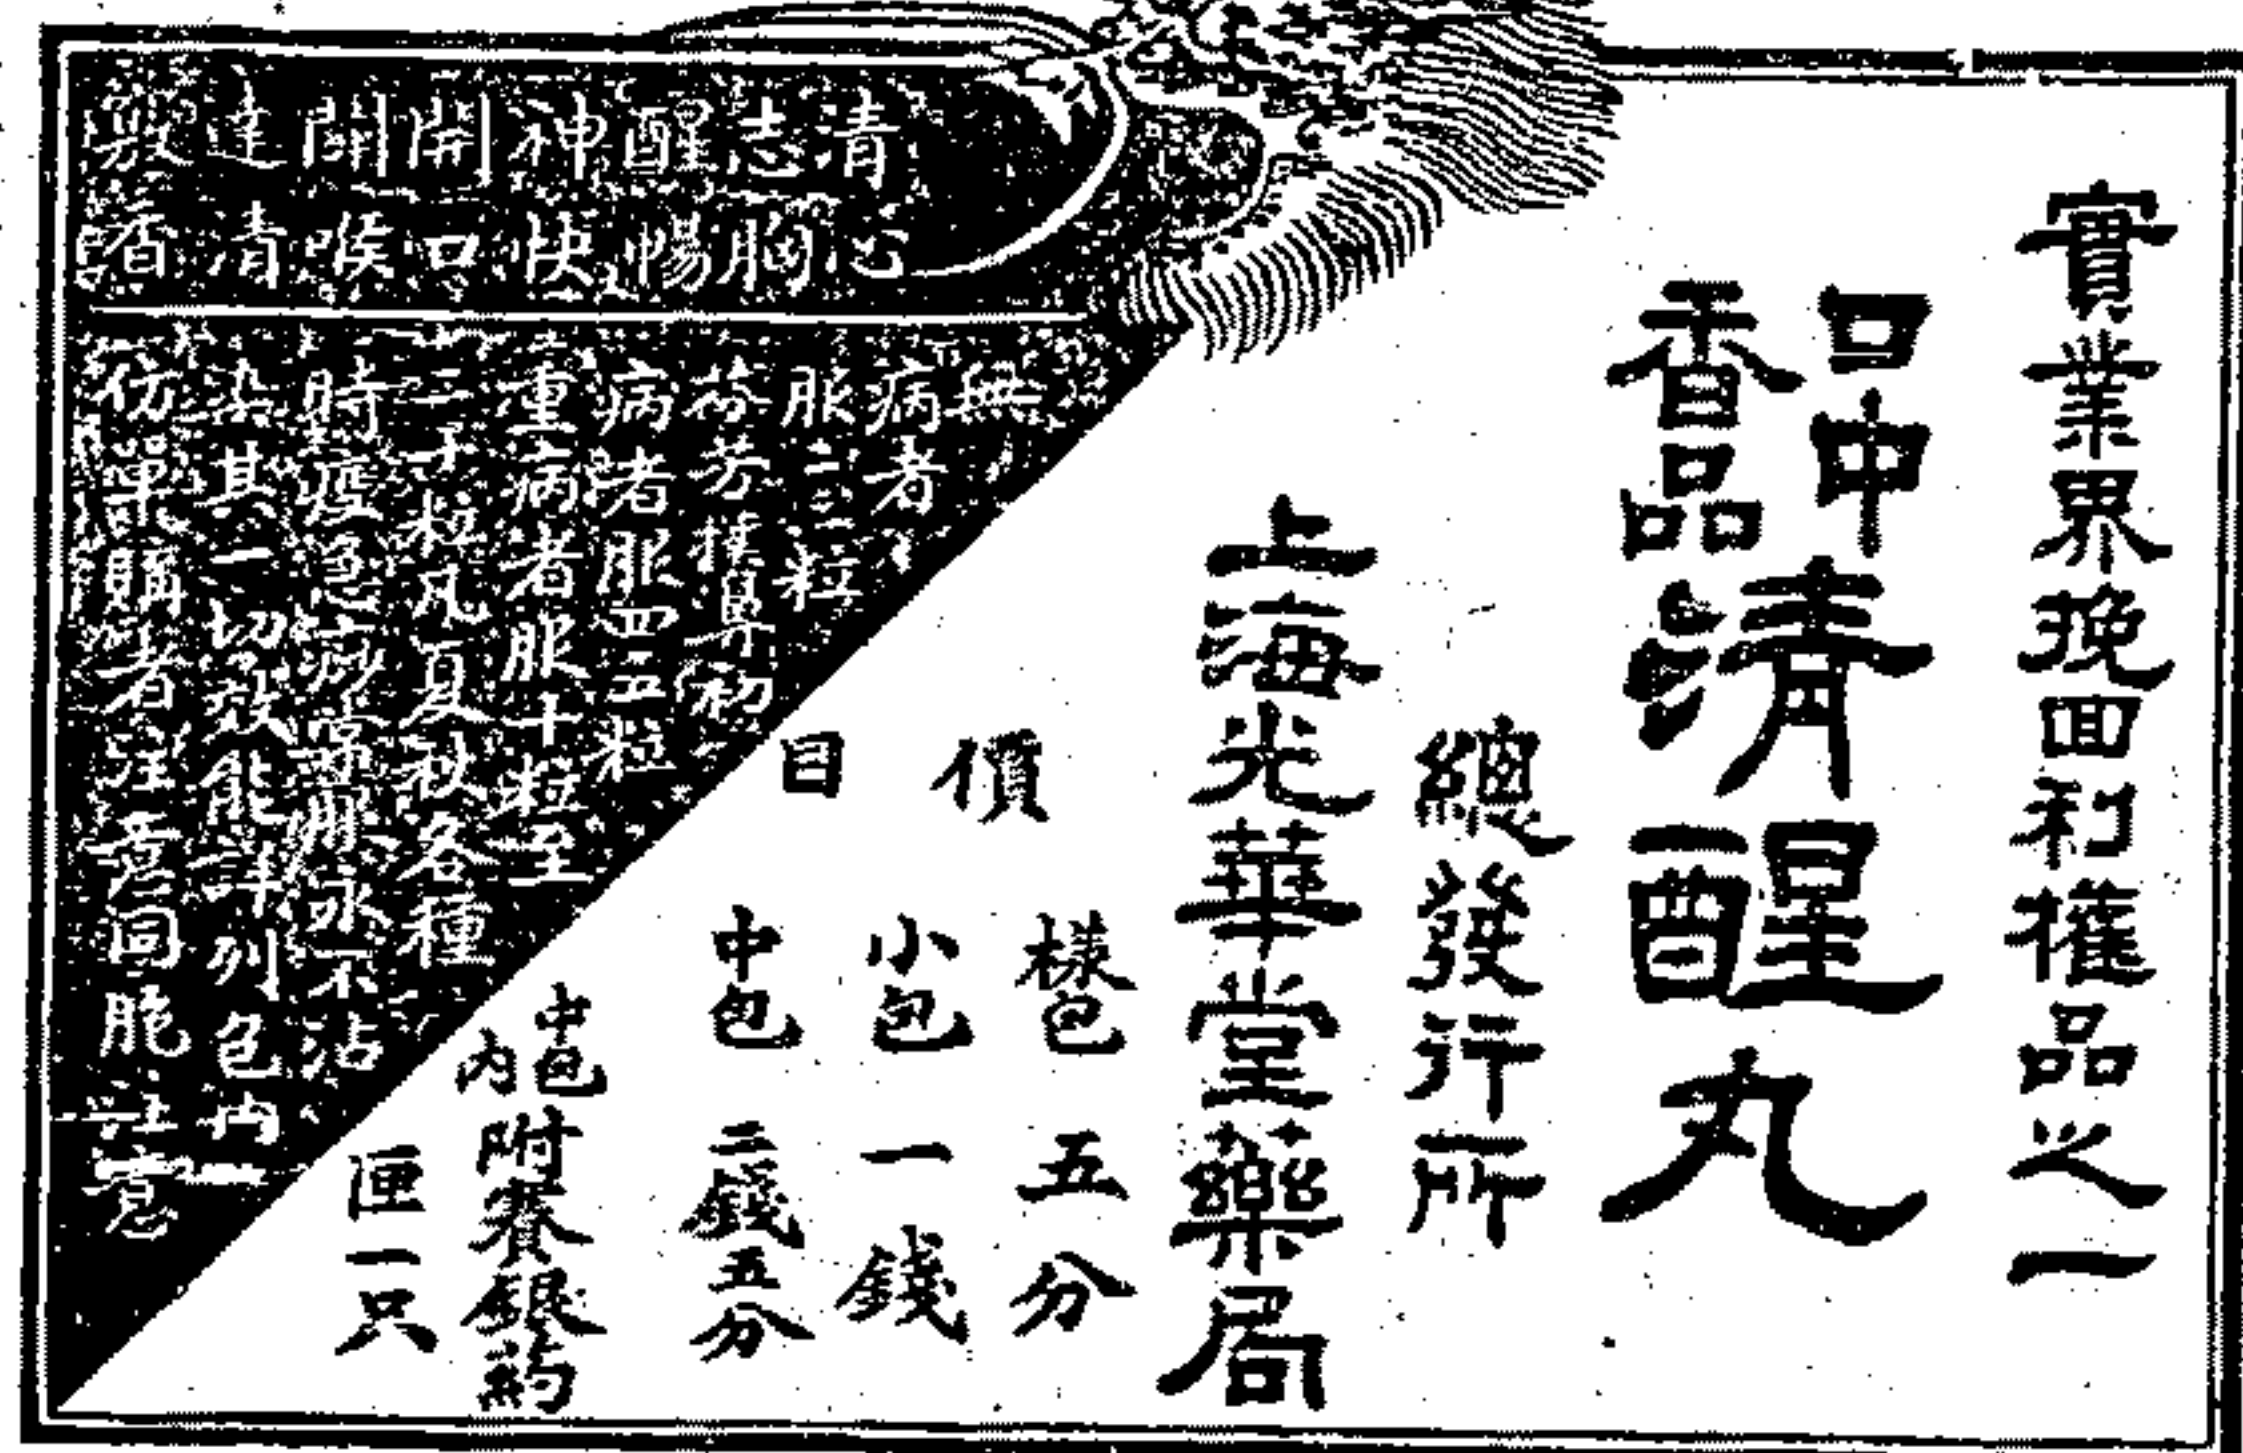 實業界挽回利權品之一
口中
香品
清醒丸
總發行所
上海光華堂藥局
價目
樣包 五分
小包 一錢
中包 二錢五分
中包內附賽銀葯
匣一只
清心
志胸
醒暢
神快
開口
關喉
達清
無
病者
服二三粒
芬芳撲鼻初
病者服四五粒
重病者服十粒至
二三十粒凡夏秋各種
時疫急痧常服永不沾
染其一切效能詳列包內
仿單購者注意同胞注意